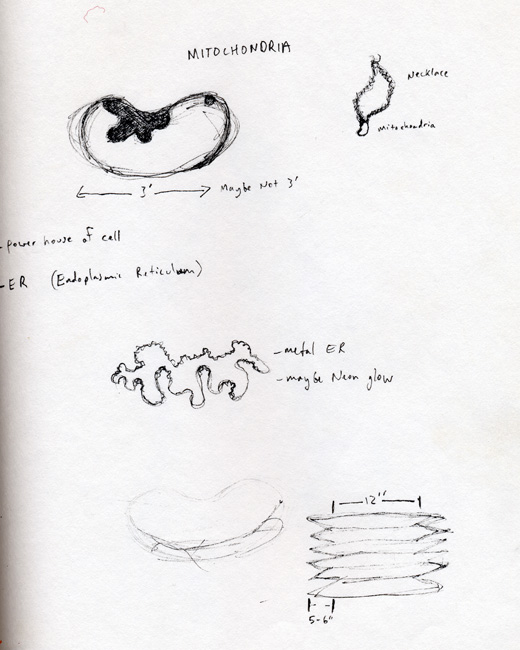 MITOCHONDRIA
Necklace
Mitochondria
3' Maybe Not 3'
-power house of cell
-ER (Endoplasmic Reticulum)
-metal ER
-maybe Neon glow
12"
5-6"